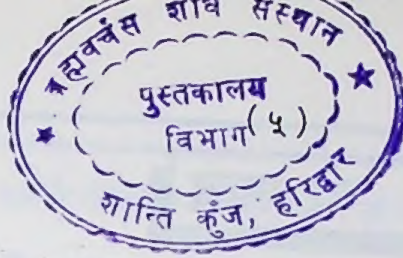 ब्रह्मवर्चस शोध संस्थान
पुस्तकालय
विभाग (५)
शान्ति कुंज, हरिद्वार